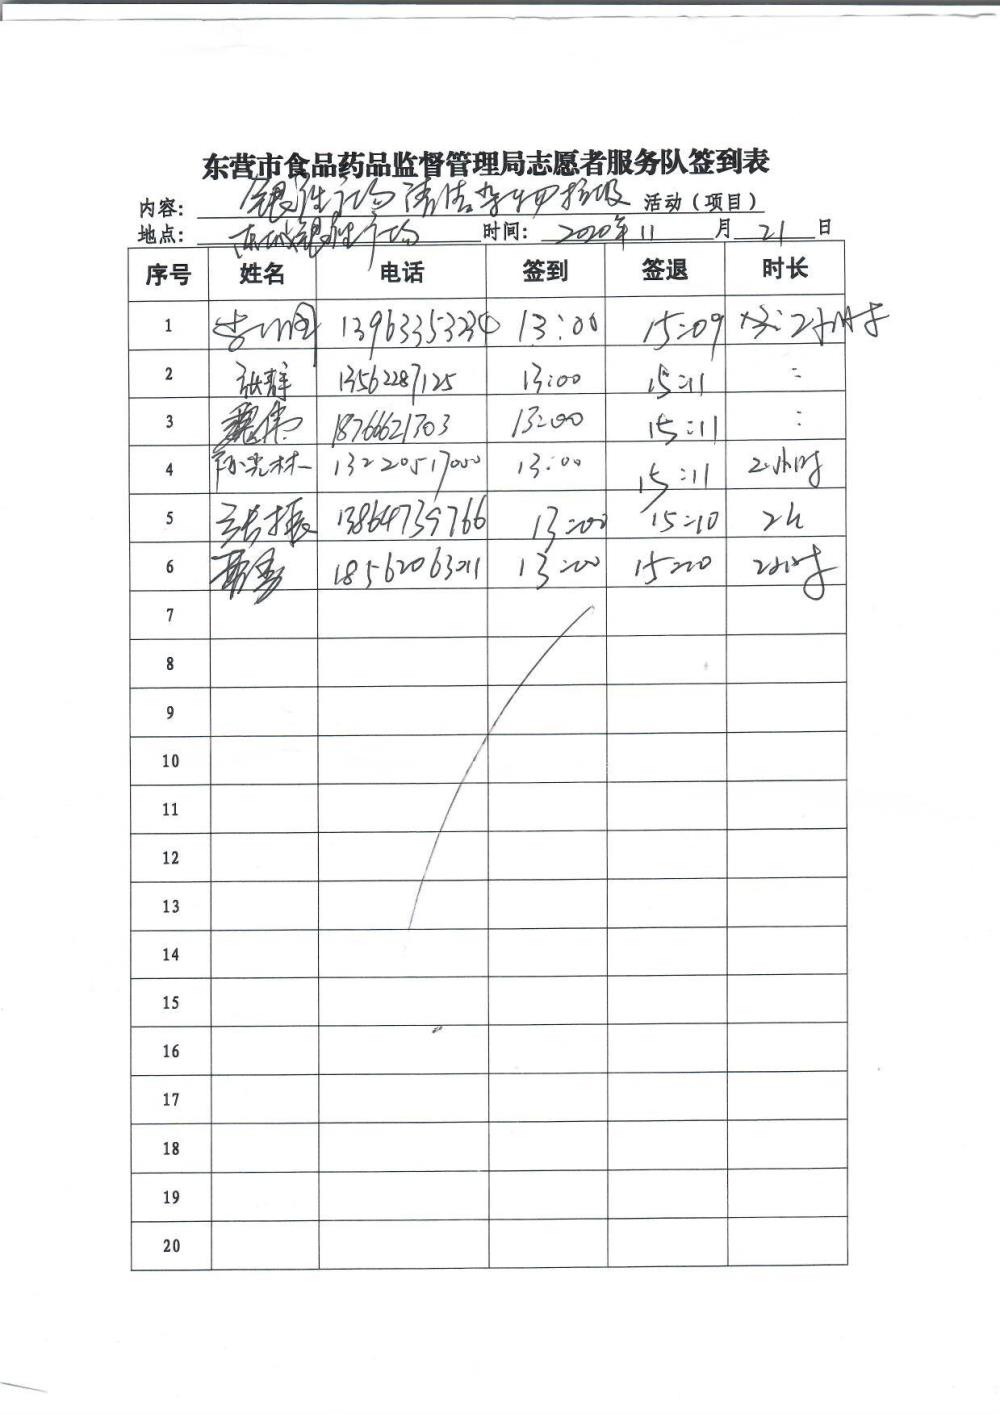 东营市食品药品监督管理局志愿者服务队签到表
内容: 银座广场清洁杂物垃圾 活动（项目）
地点: 东城银座广场 时间: 2020年11月21日
序号 姓名 电话 签到 签退 时长
1 13963353234 13:00 15:09 2小时
2 张群 13562287125 13:00 15:11
3 魏伟 18766621703 13:00 15:11
4 孙光林 13220517000 13:00 15:11 2小时
5 张振 13864739766 13:00 15:10 2h
6 18562063011 13:00 15:20 2小时
7
8
9
10
11
12
13
14
15
16
17
18
19
20